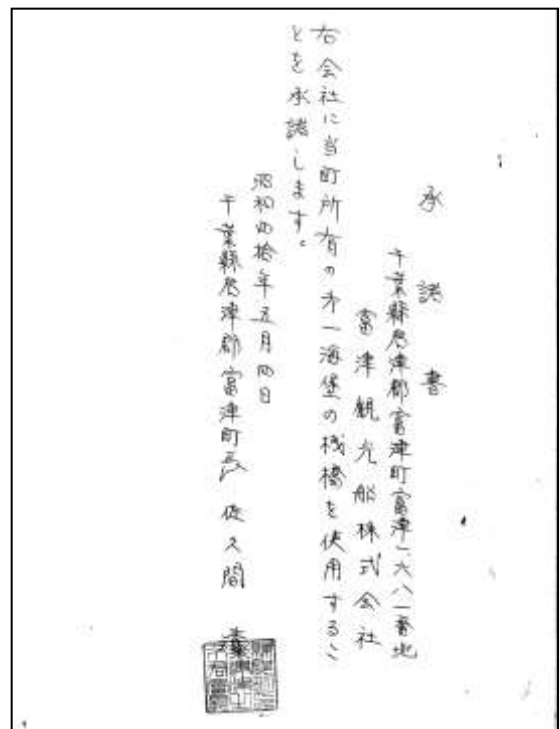 承諾書
千葉縣君津郡富津町富津一、六八一番地
富津観光船株式会社
右会社に当町所有の才一海堡の桟橋を使用するこ
とを承諾します。
昭和四拾年五月四日
千葉縣君津郡富津町長 佐久間